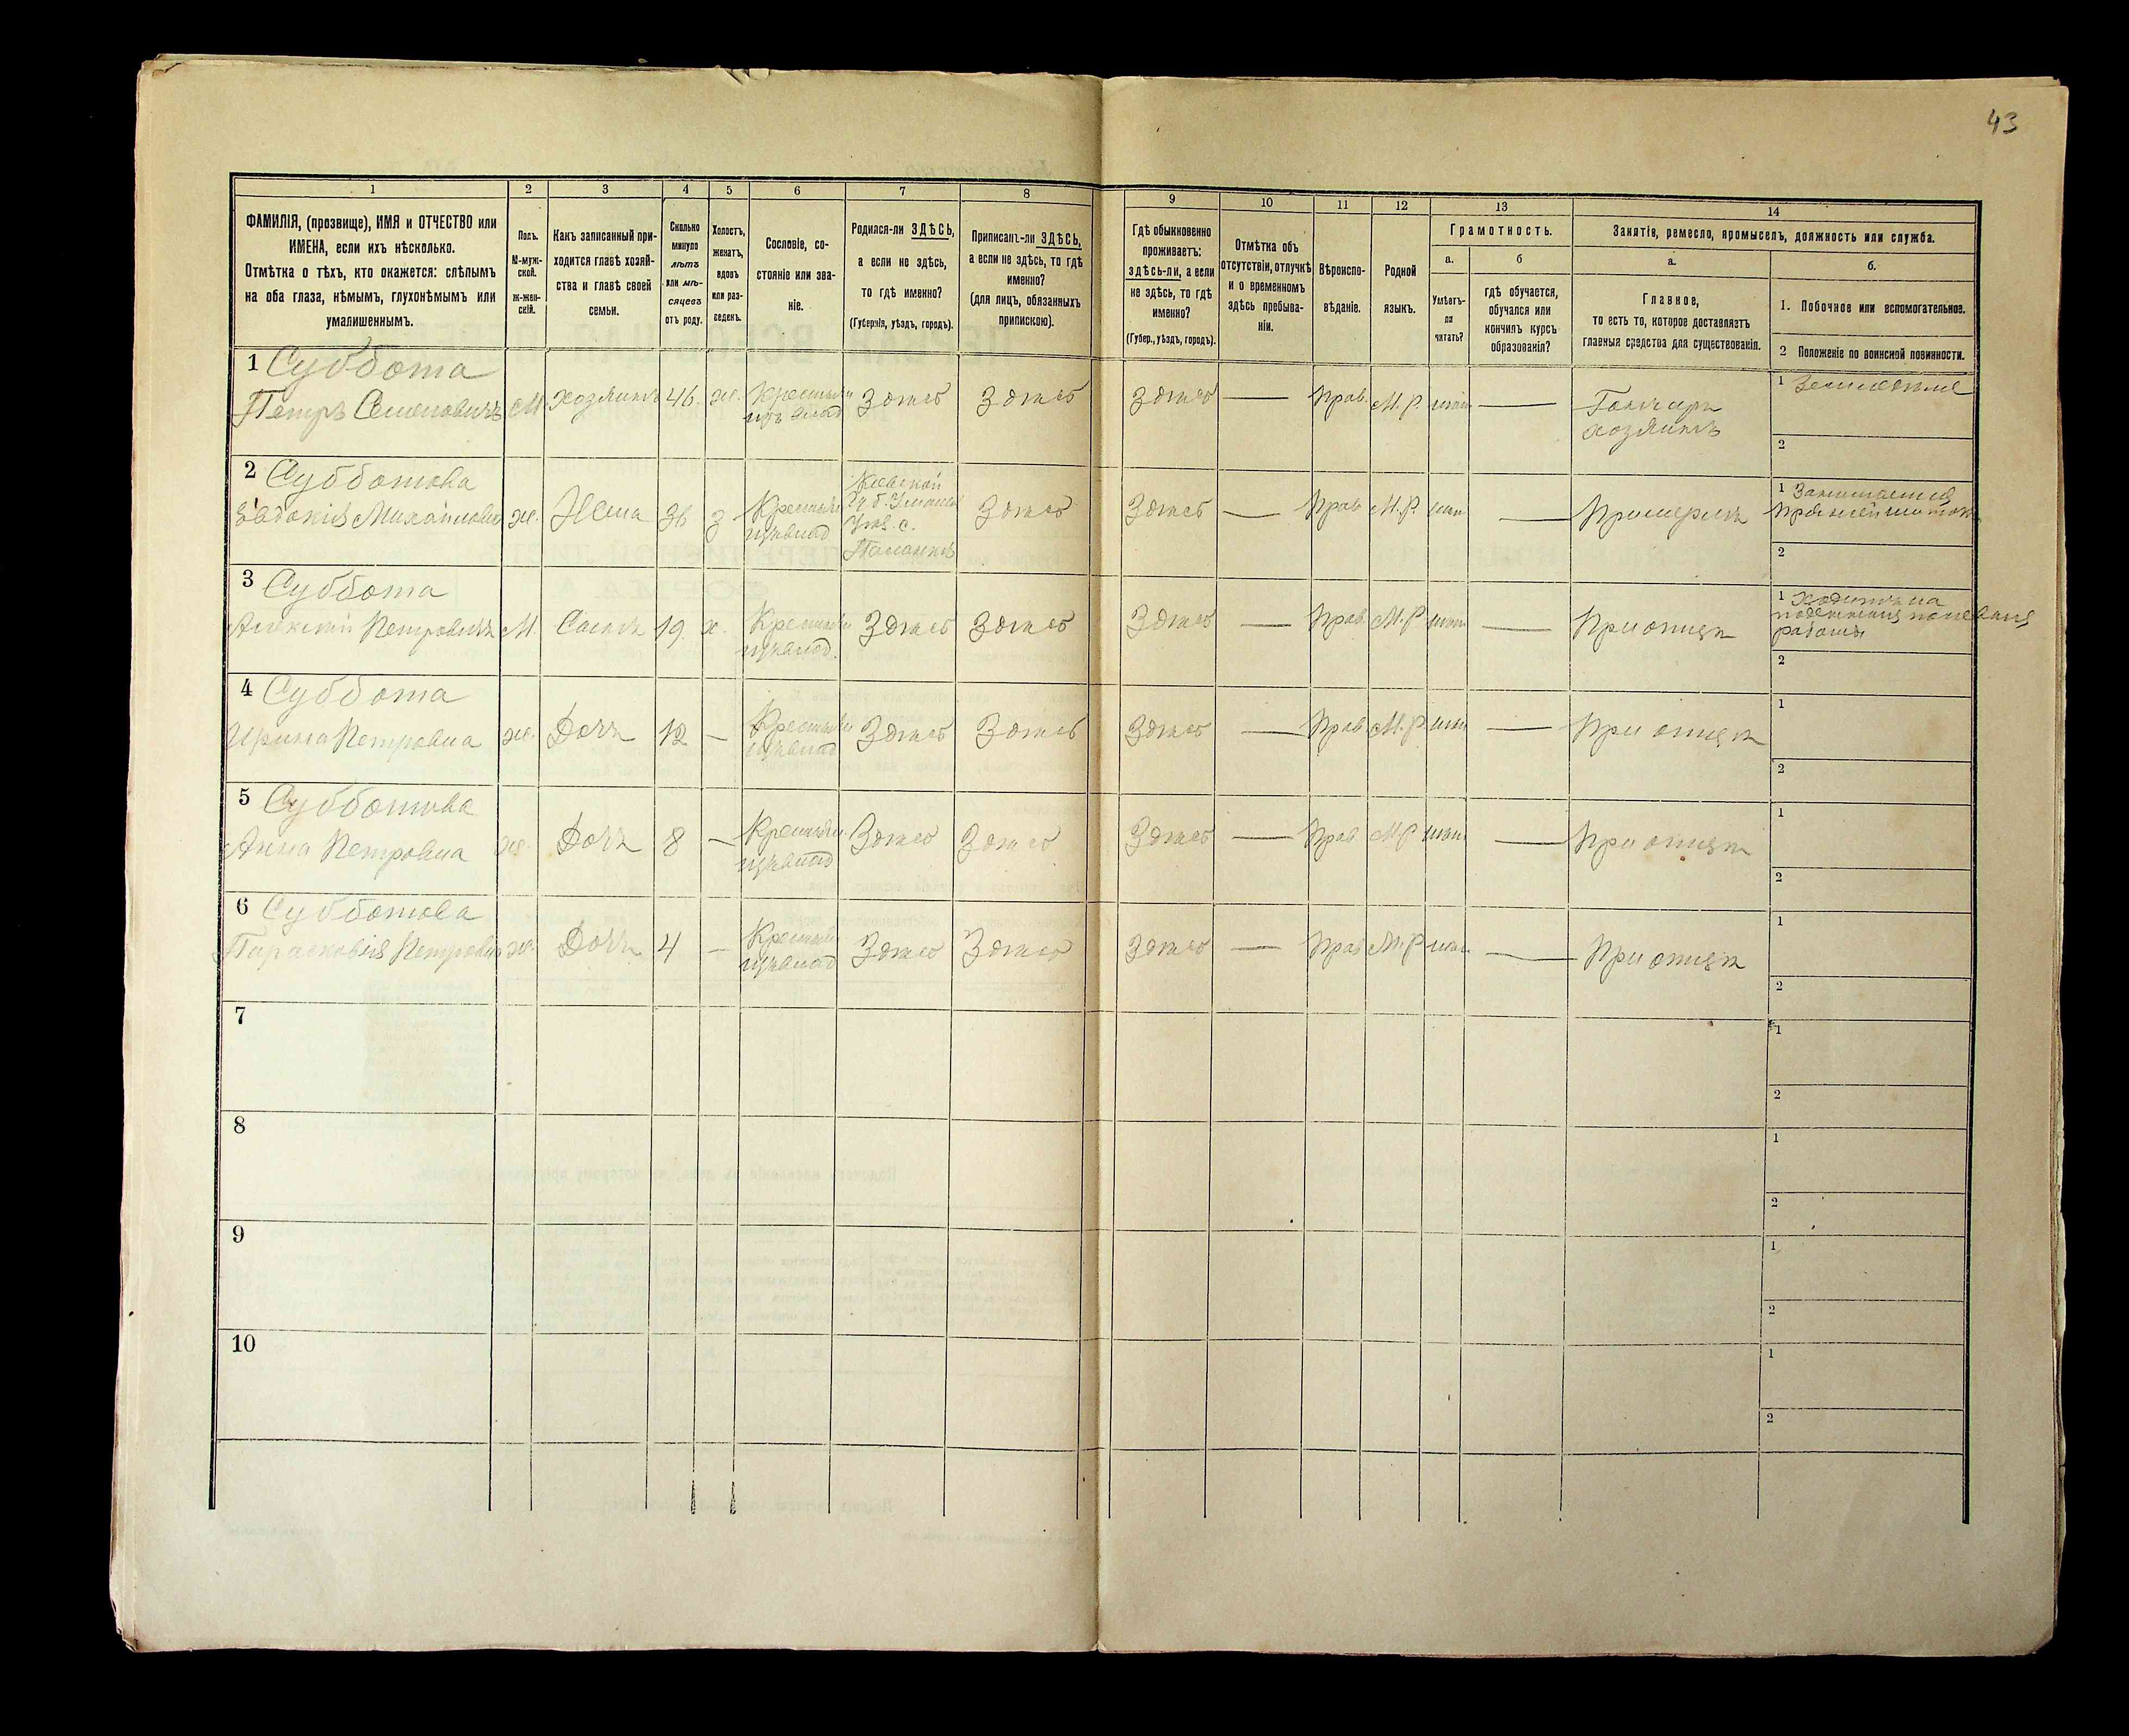 43
1 2 3 4 5 6 7 8 9 10 11 12 13 14
ФАМИЛІЯ, (прозвище), ИМЯ и ОТЧЕСТВО или
ИМЕНА, если ихъ нѣсколько.
Отмѣтка о тѣхъ, кто окажется: слѣпымъ
на оба глаза, нѣмымъ, глухонѣмымъ или
умалишеннымъ.
Полъ.
М-муж-
ской.
Ж-жен-
скій.
Какъ записанный при-
ходится главѣ хозяй-
ства и главѣ своей
семьи.
Сколько
минуло
лѣтъ
или мѣ-
сяцевъ
отъ роду.
Холостъ,
женатъ,
вдовъ
или раз-
веденъ.
Сословіе, со-
стояніе или зва-
ніе.
Родился-ли ЗДѢСЬ,
а если не здѣсь,
то гдѣ именно?
(Губернія, уѣздъ, городъ).
Приписанъ-ли ЗДѢСЬ,
а если не здѣсь, то гдѣ
именно?
(для лицъ, обязанныхъ
припискою).
Гдѣ обыкновенно
проживаетъ:
здѣсь-ли, а если
не здѣсь, то гдѣ
именно?
(Губер., уѣздъ, городъ).
Отмѣтка объ
отсутствіи, отлучкѣ
и о временномъ
здѣсь пребыва-
ніи.
Вѣроиспо-
вѣданіе.
Родной
языкъ.
Грамотность.
а.
Умѣетъ-
ли
читать?
б
гдѣ обучается,
обучался или
кончилъ курсъ
образованія?
Занятіе, ремесло, промыселъ, должность или служба.
а.
Главное,
то есть то, которое доставляетъ
главныя средства для существованія.
б.
1. Побочное или вспомогательное.
2 Положеніе по воинской повинности.
1 Суббота
Петръ Семеновичъ М. хозяинъ 46. ж. Здѣсь Здѣсь Здѣсь — Прав. М. Р. — Гончаръ
хозяинъ
1
2
2 Субботова
Евдокія Михайловна ж. Жена 36 З Здѣсь Здѣсь — Прав М. Р. —
Кіевской
Губ. Уманск
Уѣз. с.
1 Занимается
2
3 Суббота
Алексѣй Петровичъ М. Сынъ 19 х. Здѣсь Здѣсь Здѣсь — Прав. М. Р — При отцѣ
1 Ходитъ на
работы
2
4 Суббота
Ирина Петровна ж. Дочь 12 — Здѣсь Здѣсь Здѣсь — Прав М. Р — При отцѣ
1
2
5 Субботова
Анна Петровна ж. Дочь 8 — Здѣсь Здѣсь Здѣсь — Прав М. Р — При отцѣ
1
2
6 Субботова
Парасковія Петровна ж. Дочь 4 — Здѣсь Здѣсь Здѣсь — Прав М. Р — При отцѣ
1
2
7
1
2
8
1
2
9
1
2
10
1
2